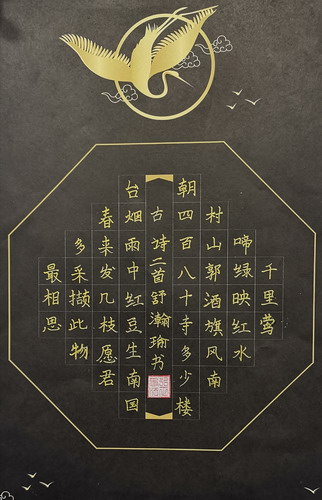 千里莺
啼绿映红水
村山郭酒旗风南
朝四百八十寺多少楼
古诗二首舒瀚瑜书
台烟雨中红豆生南国
春来发几枝愿君
多采撷此物
最相思